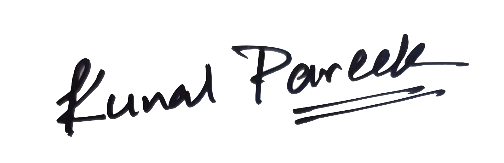 Kunal Pareek